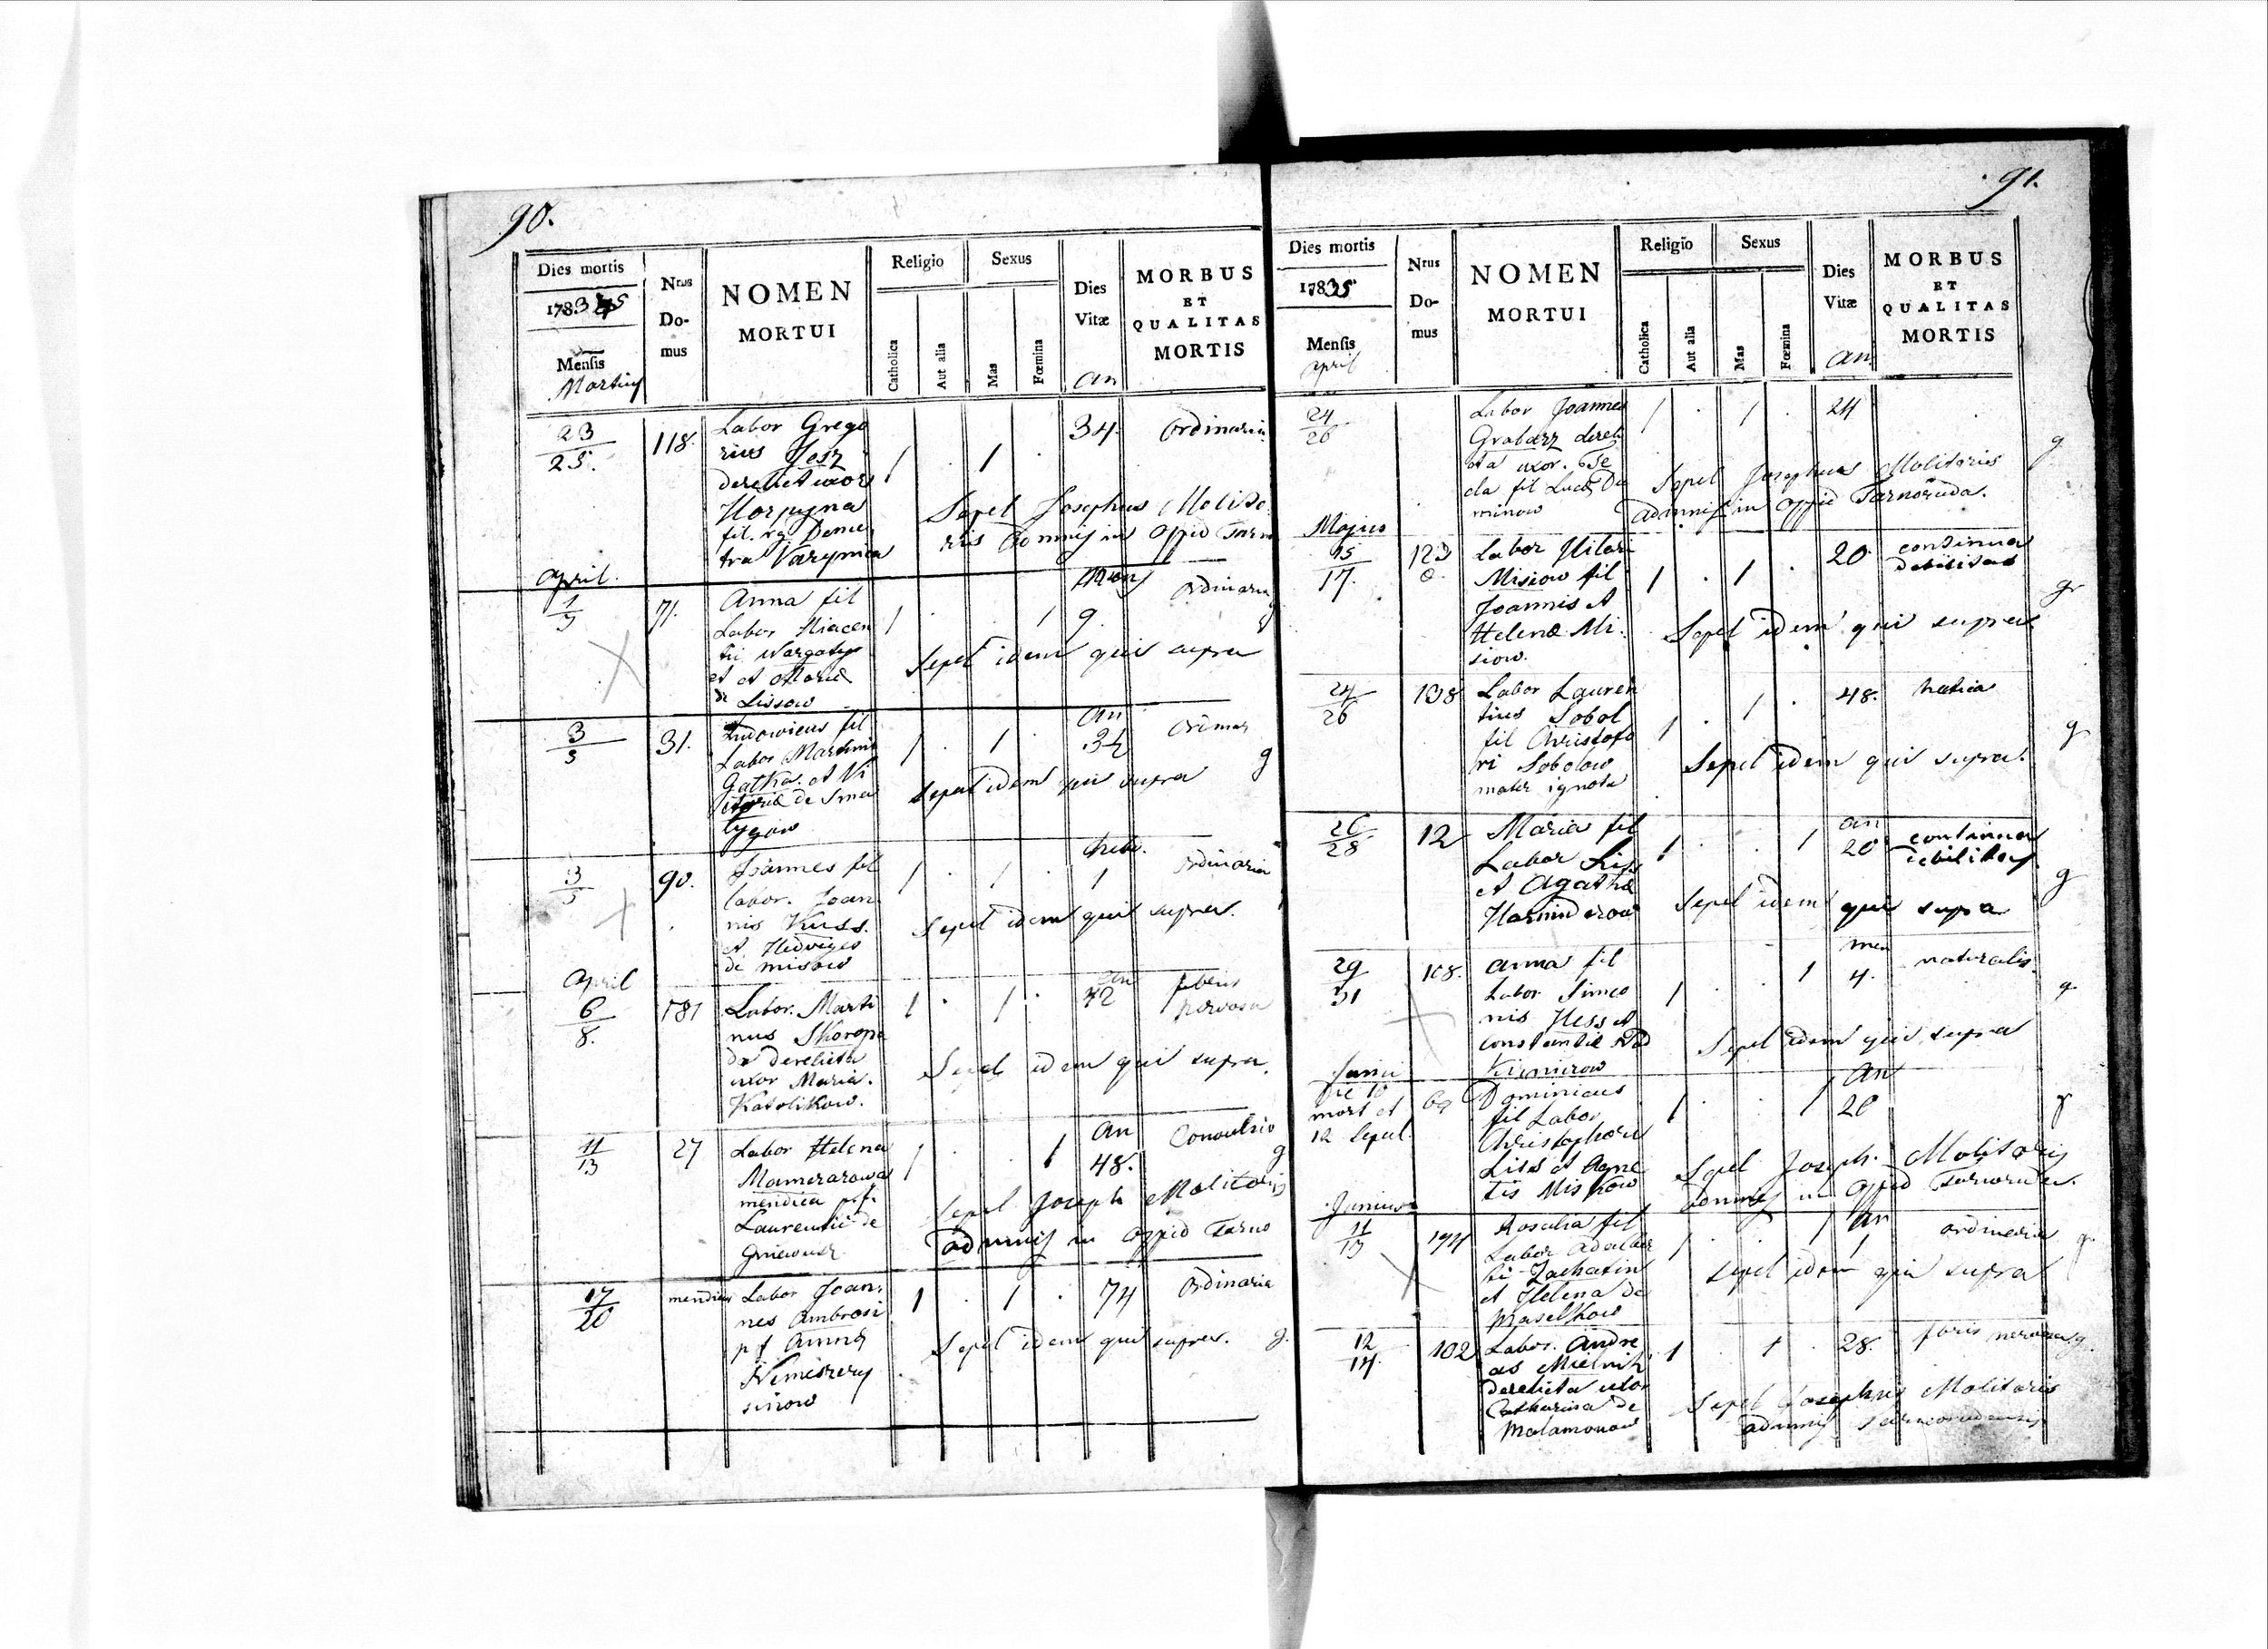 90.
Dies mortis
1783
Mensis
Martius
Nrus
Do-
mus
NOMEN
MORTUI
Religio
Catholica
Aut alia
Sexus
Mas
Fœmina
Dies
Vitæ
an
MORBUS
ET
QUALITAS
MORTIS
23
25.
118.
Labor Grego
rius Jesz
derelict uxor
Horpyna
fil.
tra
1 . 1
34.
ordinaria
Sepel Josephus Molito
ris Admnis in Oppid Tarn
April.
1
3
71.
Anna fil
Labor Hiacen
tii
et Mariæ
de Lissow
1 . . 1
9.
ordinaria
Sepel idem qui supra
3
5
31.
Ludovicus fil
Labor Martini
Gatka et Vi
de Sma
lygow
1 . 1 .
an
g
Sepel idem qui supra
3
5
90.
Joannes fil
labor. Joan
nis Kuss.
et Hedviges
de misow
1 . 1 .
1
ordinaria
Sepel idem qui supra.
April
6
8.
181
Labor. Marti
nus Skoropa
da derelicta
uxor Maria.
Katolikow.
1 . 1 .
an
42
febris
nervosa
Sepel idem qui supra.
11
13
27
Labor Helena
Mamerarowa
mendica p.f.
Laurentii de
Gniewusz
1 . . 1
an
48.
Convulsio
g
Sepel Joseph Molitoris
admnis in oppid Tarno
17
20
mendicus
Labor Joan.
nes Ambrosi
p f Anna
sirow
1 . 1 .
74
ordinaria
Sepel idem qui supra.
g.
91.
Dies mortis
17835
Mensis
april
Nrus
Do-
mus
NOMEN
MORTUI
Religio
Catholica
Aut alia
Sexus
Mas
Fœmina
Dies
Vitæ
an
MORBUS
ET
QUALITAS
MORTIS
24
26
Labor Joannes
Grabarz dereli
cta uxor.
fil Luca Du
minow
1 . 1 .
24
g
Sepel Josephus Molitoris
admnis in oppid Tarnoruda.
Majus
15
17.
123
Labor Hilari
Misiow fil
Joannis et
Helenæ Mi.
siow.
1 . 1 .
20
continua
debilitas
gr
Sepel idem qui supra
24
26
138
Labor Lauren
tius Sobol
fil Christofo
ri Sobolow
mater ignota
1 . 1 .
48.
hectica
g
Sepel idem qui supra.
26
28
12
Maria fil
Labor Liss
et Agatha
1 . . 1
an
20
continua
debilitas
g
Sepel idem qui supra
29
31
108.
Anna fil
Labor Simeo
nis Hess et
Constantiæ
Kiemirow
1 . . 1
men
4.
naturalis.
g
Sepel idem qui supra
Junii
die 10
mort et
12 Sepul.
69
Dominicus
fil Labor
Christophori
Liss et Agne
tis Miskow
1 . . 1
an
20
g
Sepel Joseph. Molitoris
admnis in oppid Tarnoruda.
Junius
11
13
Rosalia fil
Labor Adalber
ti Zachatin
et Helena de
Maselkow
1 . . 1
an
1
ordinaria
g.
Sepel idem qui supra
12
14.
102
Labor. Andre
as Mielnik
derelicta uxor
Catharina de
Malamonow
1 . 1 .
28.
nervosa
g.
Sepel Josephus Molitoris
admnis